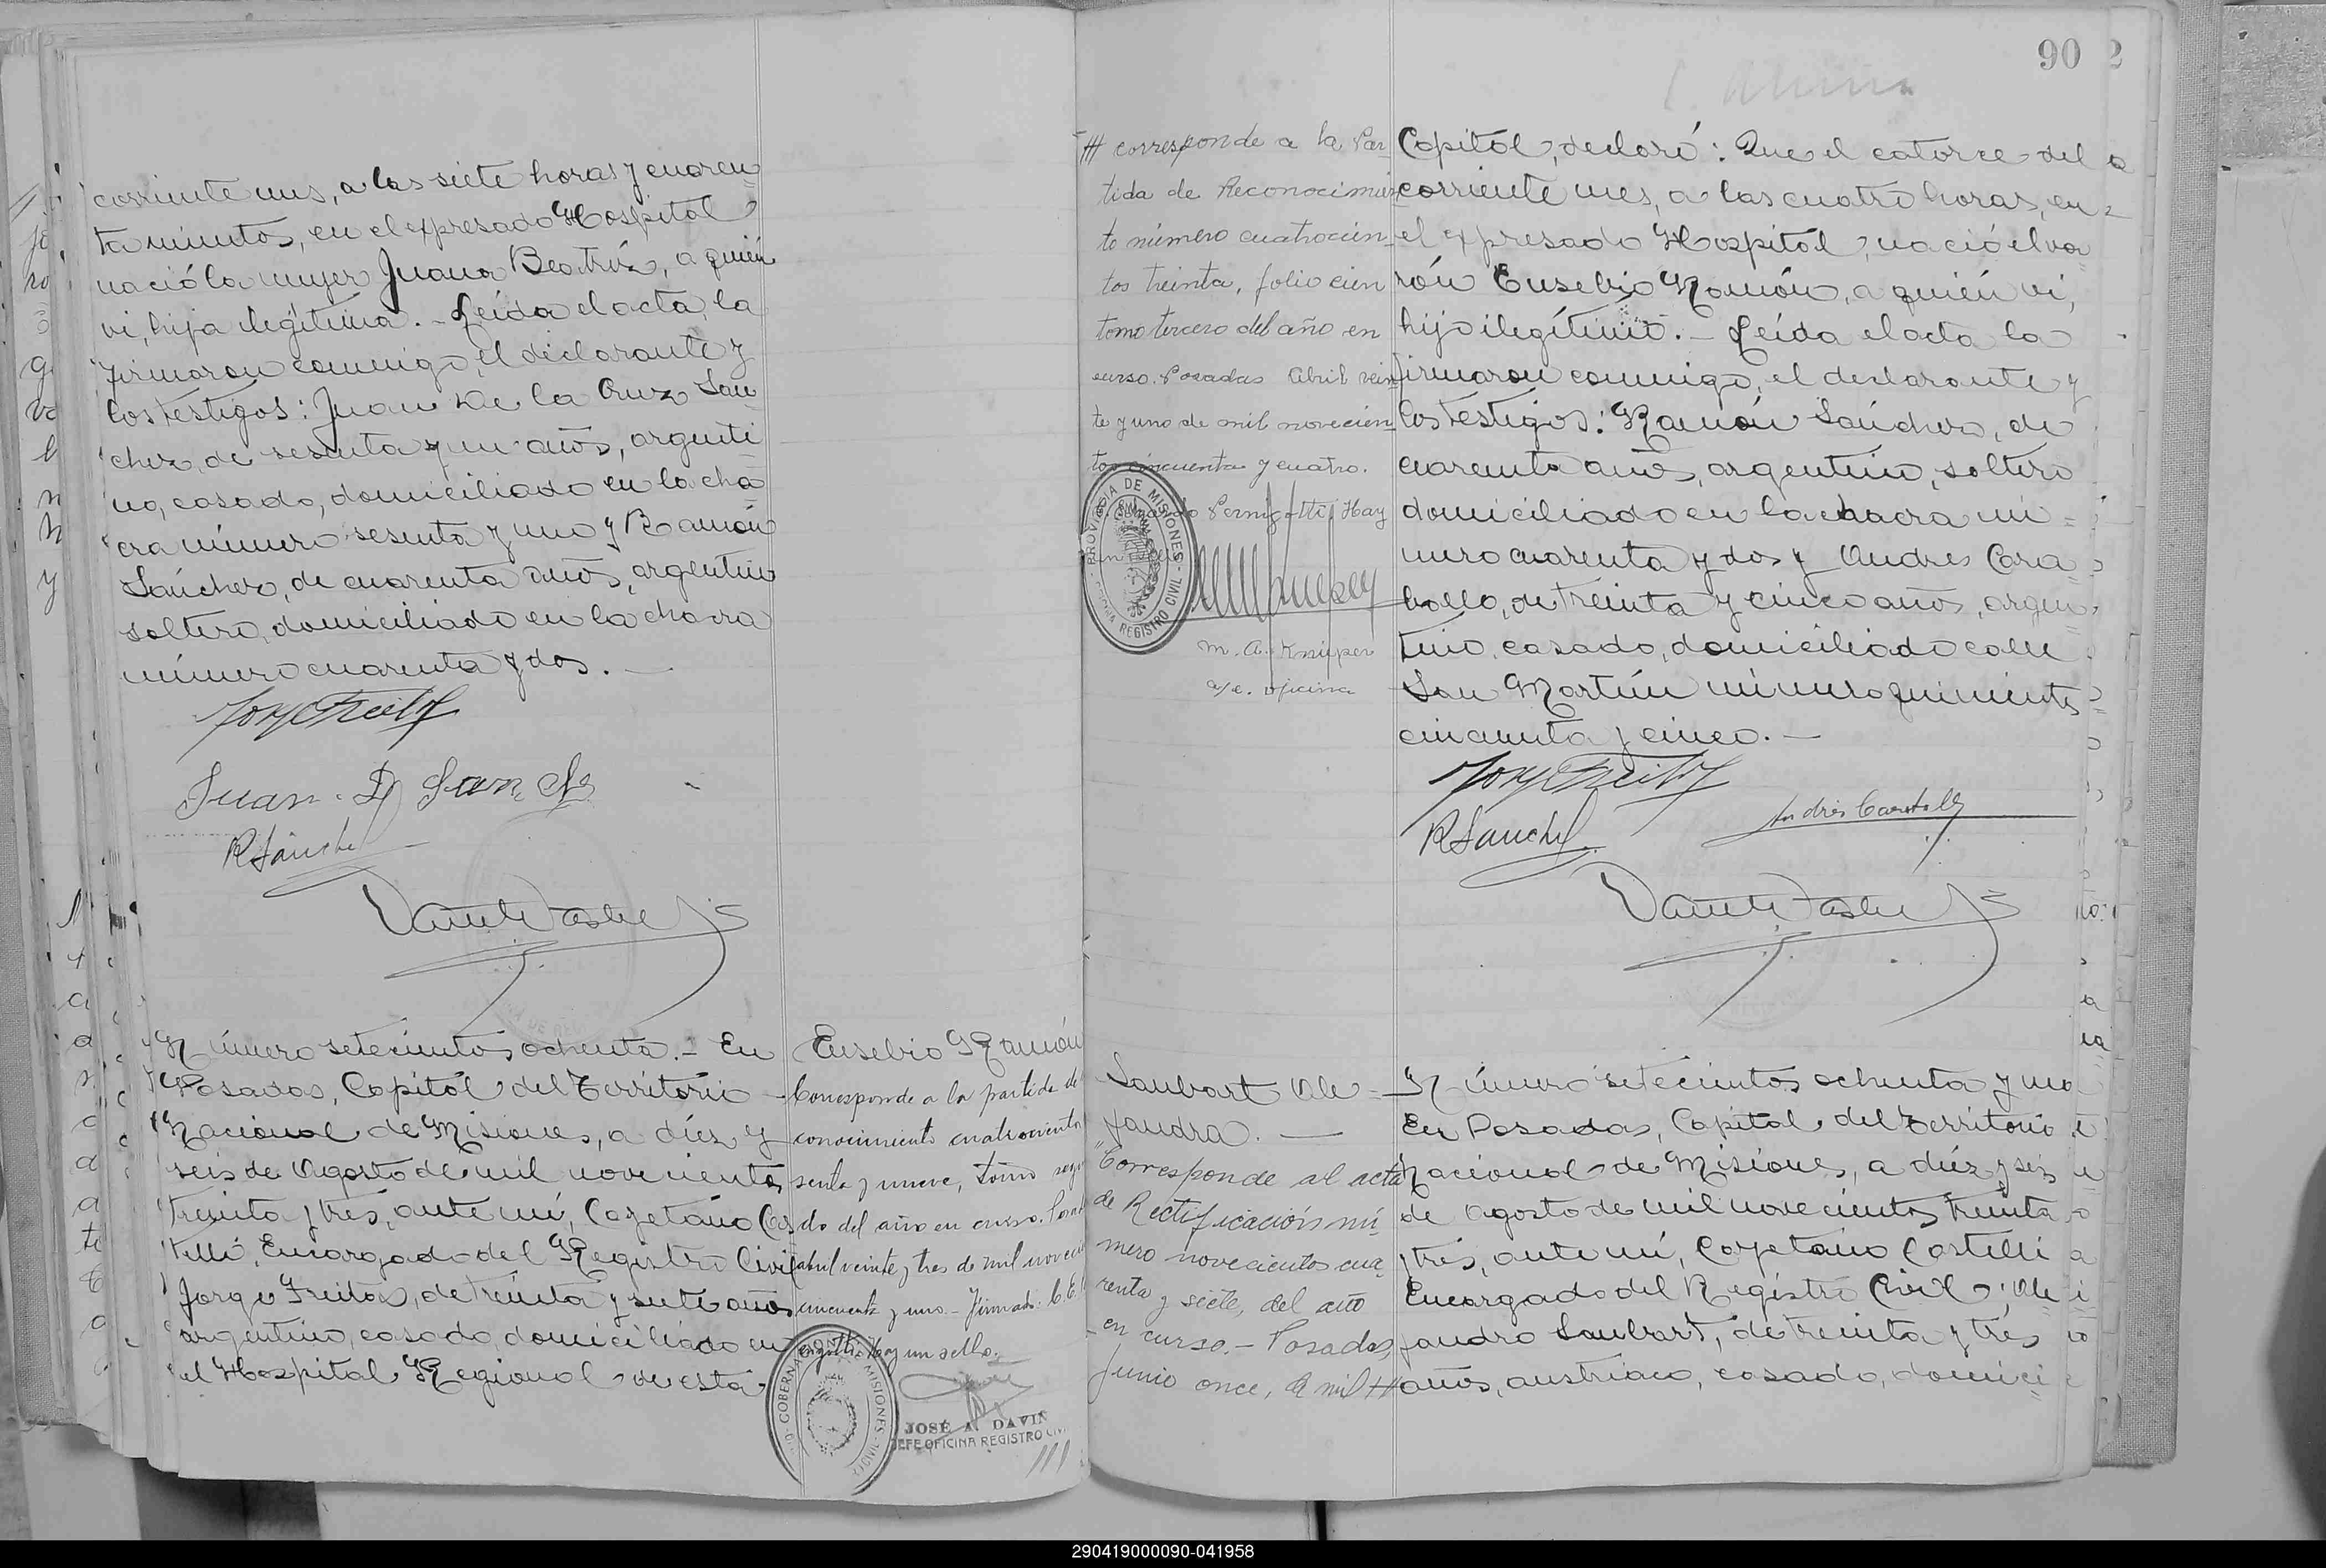 corriente mes, a las siete horas y cuaren=
ta minutos, en el expresado Hospital
nació la mujer Juana Beatríz, a quién
vi, hija ilegítima.- Leída el acta, la
firmaron conmigo, el declarante y
los testigos: Juan De la Cruz San=
chez, de sesenta y un años, argenti
no, casado, domiciliado en la cha=
cra número sesenta y uno y Ramón
Sánchez, de cuarenta años, argentino
soltero, domiciliado en la chacra
número cuarenta y dos.-
Juan D Sanchz
R Sanchez
Número setecientos ochenta.- En
Posadas, Capital del Territorio
Nacional de Misiones, a diez y
seis de Agosto de mil novecientos
treinta y tres, ante mí, Cayetano Cas
telli, Encargado del Registro Civil
Jorge Freitas, de treinta y siete años
argentino, casado, domiciliado en
el Hospital Regional de esta
Eusebio Ramón
Corresponde a la partida de
conocimiento cuatrocientos
senta y nueve, tomo segun
do del año en curso. Posad
abril veinte y tres de mil novecien
cincuenta y uno.- Firmado:
Hay un sello.
JOSÉ A. DAVIÑ
JEFE OFICINA REGISTRO CIV
90
# corresponde a la Par=
tida de Reconocimien
to número cuatrocien=
tos treinta, folio cien
tomo tercero del año en
curso. Posadas Abril vein
te y uno de mil novecien=
tos cincuenta y cuatro.
Pernigotti Hay
un sello
PROVINCIA DE MISIONES
REGISTRO CIVIL
M. A. Knieper
a/c. oficina
Capital, declaró: Que el catorce del
corriente mes, a las cuatro horas, en
el expresado Hospital, nació el va
rón Eusebio Ramón, a quién vi,
hijo ilegítimo.- Leída el acta la
firmaron conmigo, el declarante y
los testigos: Ramón Sánchez, de
cuarenta años, argentino, soltero
domiciliado en la chacra nú=
mero cuarenta y dos y Andres Cara=
ballo, de treinta y cinco años, argen=
tino, casado, domiciliado calle
San Martín número quinientos
cincuenta y cinco.-
R Sanchez
Andrés Caraballo
Saubart Ale=
jandra.-
"Corresponde al acta
de Rectificación nú
mero novecientos cua=
renta y siete, del año
en curso.- Posadas,
Junio once, de mil #
Número setecientos ochenta y uno
En Posadas, Capital del Territorio
Nacional de Misiones, a diez y seis
de Agosto de mil novecientos treinta
y tres, ante mí, Cayetano Castelli
Encargado del Registro Civil, Ale=
jandro Saubart, de treinta y tres
años, austriaco, casado, domici=
290419000090-041958